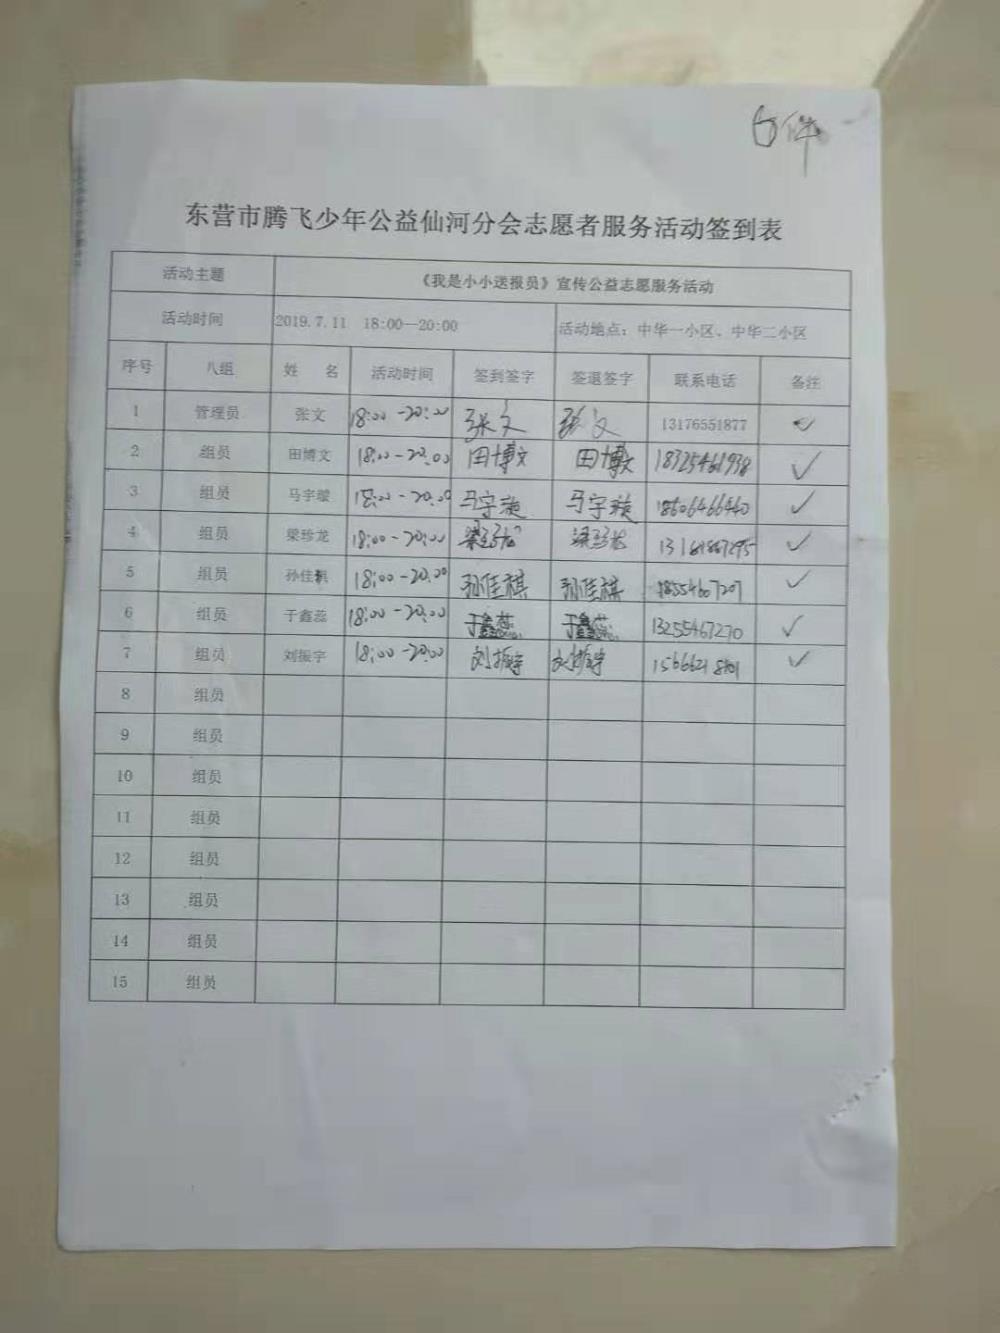 6件
东营市腾飞少年公益仙河分会志愿者服务活动签到表
活动主题 《我是小小送报员》宣传公益志愿服务活动
活动时间 2019.7.11 18:00—20:00 活动地点：中华一小区、中华二小区
序号 八组 姓 名 活动时间 签到签字 签退签字 联系电话 备注
1 管理员 张文 18:00-20:00 张文 张文 13176551877 ✓
2 组员 田博文 18:00-20:00 田博文 田博文 ✓
3 组员 马宇璇 18:00-20:00 马宇璇 马宇璇 18606466460 ✓
4 组员 梁珍龙 18:00-20:00 梁珍龙 梁珍龙 ✓
5 组员 孙佳祺 18:00-20:00 孙佳祺 孙佳祺 18554607207 ✓
6 组员 于鑫蕊 18:00-20:00 于鑫蕊 于鑫蕊 13255467270 ✓
7 组员 刘振宇 18:00-20:00 刘振宇 刘振宇 ✓
8 组员
9 组员
10 组员
11 组员
12 组员
13 组员
14 组员
15 组员